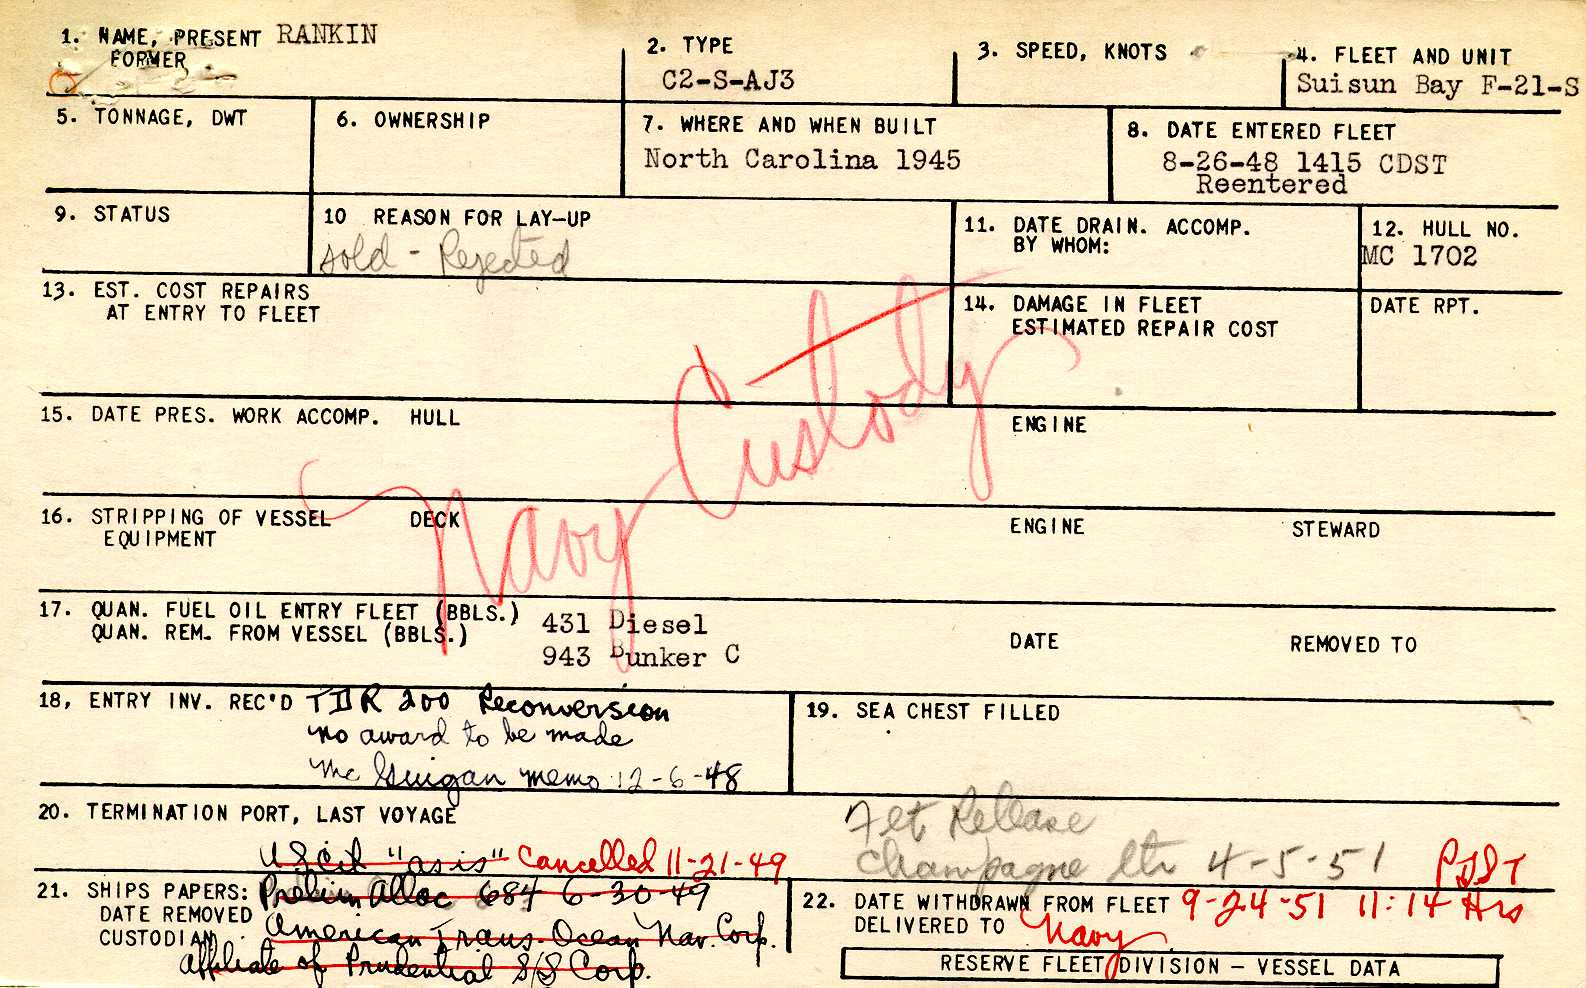 1. NAME, PRESENT RANKIN
FORMER
2. TYPE
C2-S-AJ3
3. SPEED, KNOTS
4. FLEET AND UNIT
Suisun Bay F-21-S
5. TONNAGE, DWT
6. OWNERSHIP
7. WHERE AND WHEN BUILT
North Carolina 1945
8. DATE ENTERED FLEET
8-26-48 1415 CDST
Reentered
9. STATUS
10 REASON FOR LAY-UP
sold - Rejected
11. DATE DRAIN. ACCOMP.
BY WHOM:
12. HULL NO.
MC 1702
13. EST. COST REPAIRS
AT ENTRY TO FLEET
14. DAMAGE IN FLEET
ESTIMATED REPAIR COST
DATE RPT.
Navy Custody
15. DATE PRES. WORK ACCOMP. HULL
ENGINE
16. STRIPPING OF VESSEL DECK
EQUIPMENT
ENGINE
STEWARD
17. QUAN. FUEL OIL ENTRY FLEET (BBLS.) 431 Diesel
QUAN. REM. FROM VESSEL (BBLS.) 943 Bunker C
DATE
REMOVED TO
18, ENTRY INV. REC'D TDR 200 Reconversion
no award to be made
Mc Guigan memo 12-6-48
19. SEA CHEST FILLED
20. TERMINATION PORT, LAST VOYAGE
"as is" Cancelled 11-21-49
Flt Release
Champagne ltr 4-5-51
21. SHIPS PAPERS: Prelim Alloc 684 6-30-49
DATE REMOVED
CUSTODIAN American Trans-Ocean Nav. Corp.
Affiliate of Prudential S/S Corp.
PDST
22. DATE WITHDRAWN FROM FLEET 9-24-51 11:14 Hrs
DELIVERED TO Navy
RESERVE FLEET DIVISION – VESSEL DATA